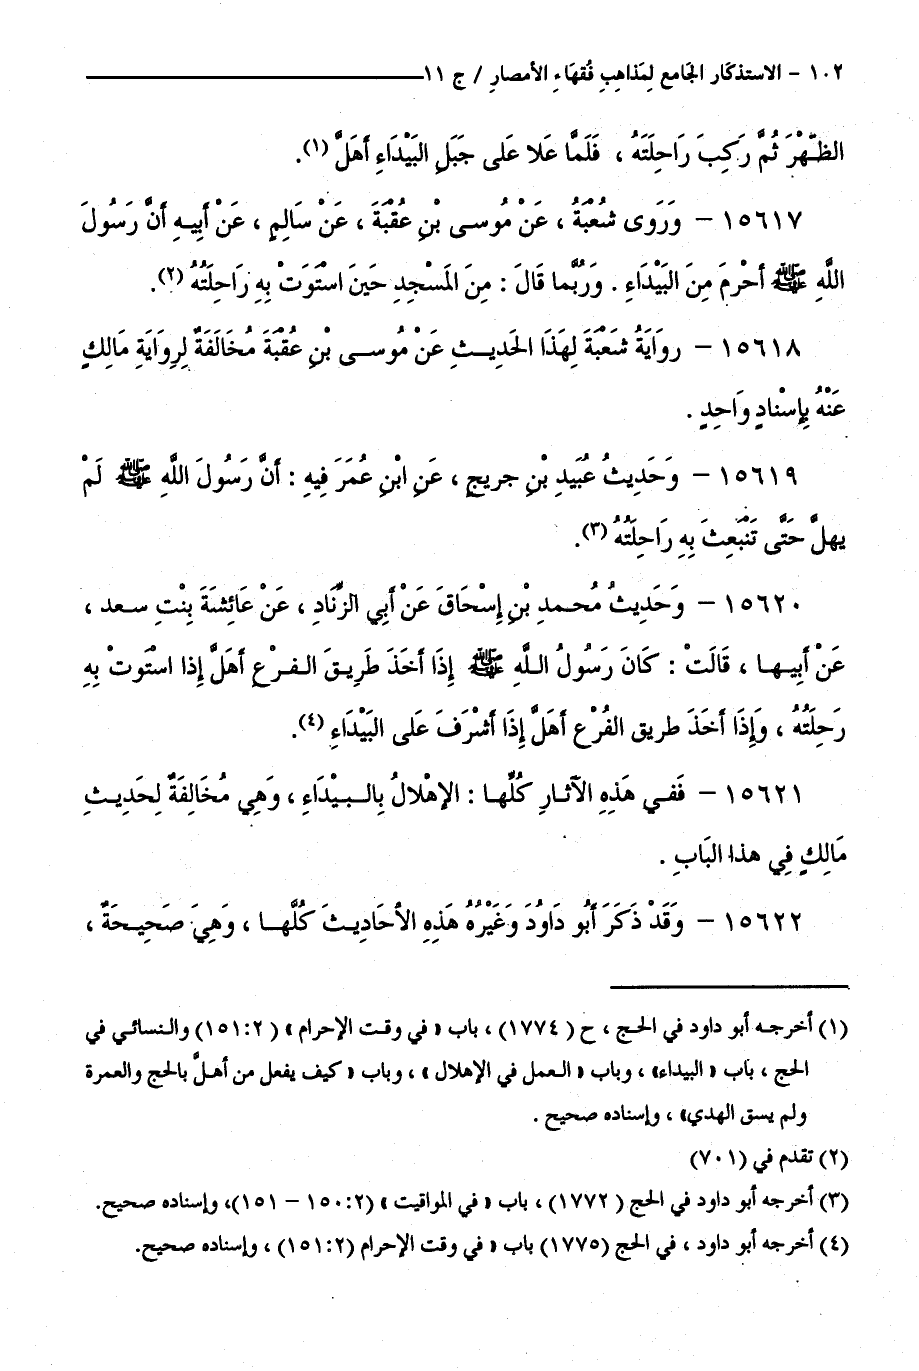 ١٠٢ - الاستذكار الجَامع لِمَذاهِبِ فُقهَاءِ الأمصارِ / ج ١١
الظُّهْرَ ثُمَّ رَكِبَ رَاحِلَتَهُ ، فَلَمَّا عَلا عَلى جَبَلِ البَيْدَاءِ أهَلَّ (١).
١٥٦١٧ - وَرَوى شُعْبَةُ ، عَنْ مُوسى بْنِ عُقْبَةَ ، عَنْ سَالِمٍ ، عَنْ أبِيهِ أنَّ رَسُولَ
اللَّهِ ﷺ أحْرمَ مِنَ البَيْدَاءِ . وَرُبَّما قَالَ : مِنَ المَسْجِدِ حَينَ اسْتَوَتْ بِهِ رَاحِلَتُهُ (٢).
١٥٦١٨ - روَايَةُ شعْبَةَ لِهَذَا الحَدِيثِ عَنْ مُوسى بْنِ عُقْبَةَ مُخَالَفَةٌ لِرِوَايَةِ مَالِكٍ
عَنْهُ بِإسْنادٍ وَاحِدٍ .
١٥٦١٩ - وَحَدِيثُ عُبَيدِ بْنِ جريجٍ ، عَنِ ابْنِ عُمَرَ فِيهِ : أنَّ رَسُولَ اللَّهِ ﷺ لَمْ
يهلَّ حَتَّى تَنْبَعِثَ بِهِ رَاحِلَتُهُ (٣).
١٥٦٢٠ - وَحَدِيثُ مُحمدِ بْنِ إسْحَاقَ عَنْ أبِي الزِّنَادِ ، عَنْ عَائِشَةَ بِنْتِ سعد ،
عَنْ أبِيها ، قَالَتْ : كَانَ رَسُولُ اللَّهِ ﷺ إذَا أخَذَ طَرِيقَ الفرْعِ أهَلَّ إذا اسْتَوتْ بِهِ
رَحِلَتُهُ ، وَإذَا أخَذَ طريق الفُرْعِ أهَلَّ إذَا أشْرَفَ عَلى البَيْدَاءِ (٤).
١٥٦٢١ - فَفي هَذِهِ الآثارِ كُلِّها : الإهْلالُ بِالبيْدَاءِ ، وَهِي مُخَالِفَةٌ لِحَدِيثِ
مَالِكٍ فِي هذا البَابِ .
١٥٦٢٢ - وَقَدْ ذَكَرَ أبُو دَاوُدَ وَغَيْرُهُ هَذِهِ الأحَادِيثَ كُلَّها ، وَهِيَ صَحِيحَةٌ ،
(١) أخرجه أبو داود في الحج ، ح ( ١٧٧٤) ، باب « في وقت الإحرام » ( ١٥١:٢) والنسائي في
الحج ، باب « البيداء» ، وباب « العمل في الإهلال » ، وباب « كيف يفعل من أهلَّ بالحج والعمرة
ولم يسق الهدي» ، وإسناده صحيح .
(٢) تقدم في (٧٠١)
(٣) أخرجه أبو داود في الحج ( ١٧٧٢) ، باب « في المواقيت » (١٥٠:٢ - ١٥١)، وإسناده صحيح.
(٤) أخرجه أبو داود ، في الحج (١٧٧٥) باب « في وقت الإحرام (١٥١:٢) ، وإسناده صحيح.